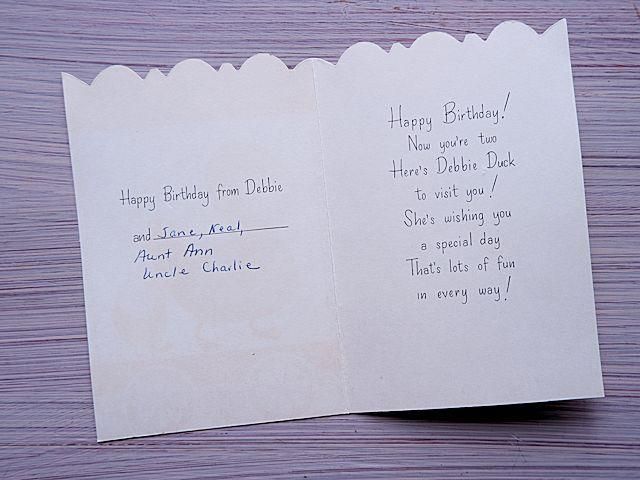 Happy Birthday from Debbie
and Jane, Neal,
Aunt Ann
Uncle Charlie
Happy Birthday!
Now you're two
Here's Debbie Duck
to visit you!
She's wishing you
a special day
That's lots of fun
in every way!